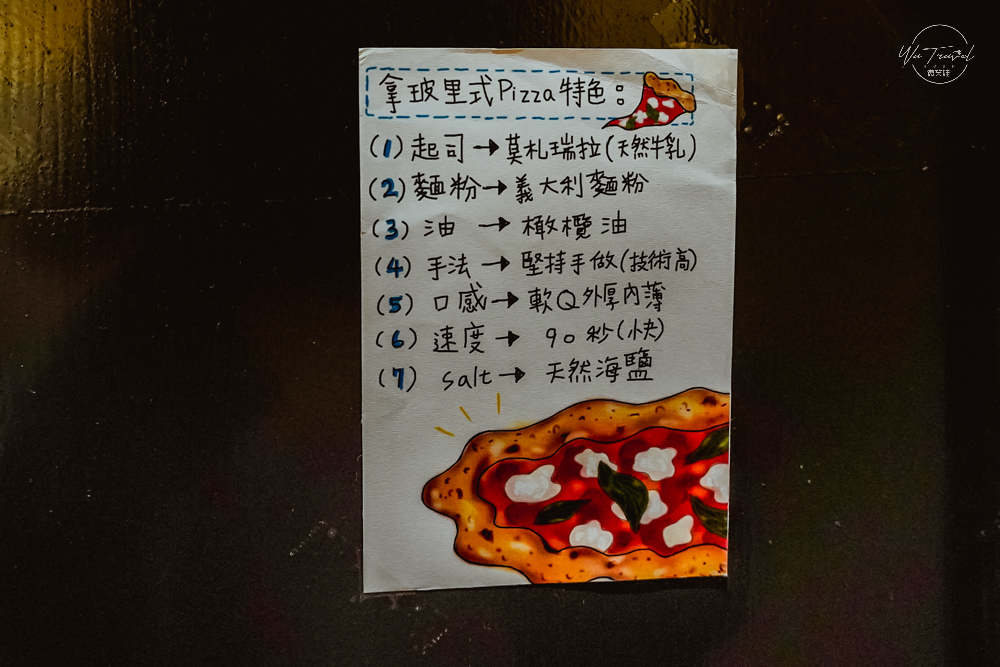 Wei Travel
微笑娃
拿玻里式Pizza特色：
(1) 起司→莫札瑞拉(天然牛乳)
(2) 麵粉→義大利麵粉
(3) 油 → 橄欖油
(4) 手法 → 堅持手做(技術高)
(5) 口感→ 軟Q外厚內薄
(6) 速度 → 90秒(快)
(7) salt→ 天然海鹽